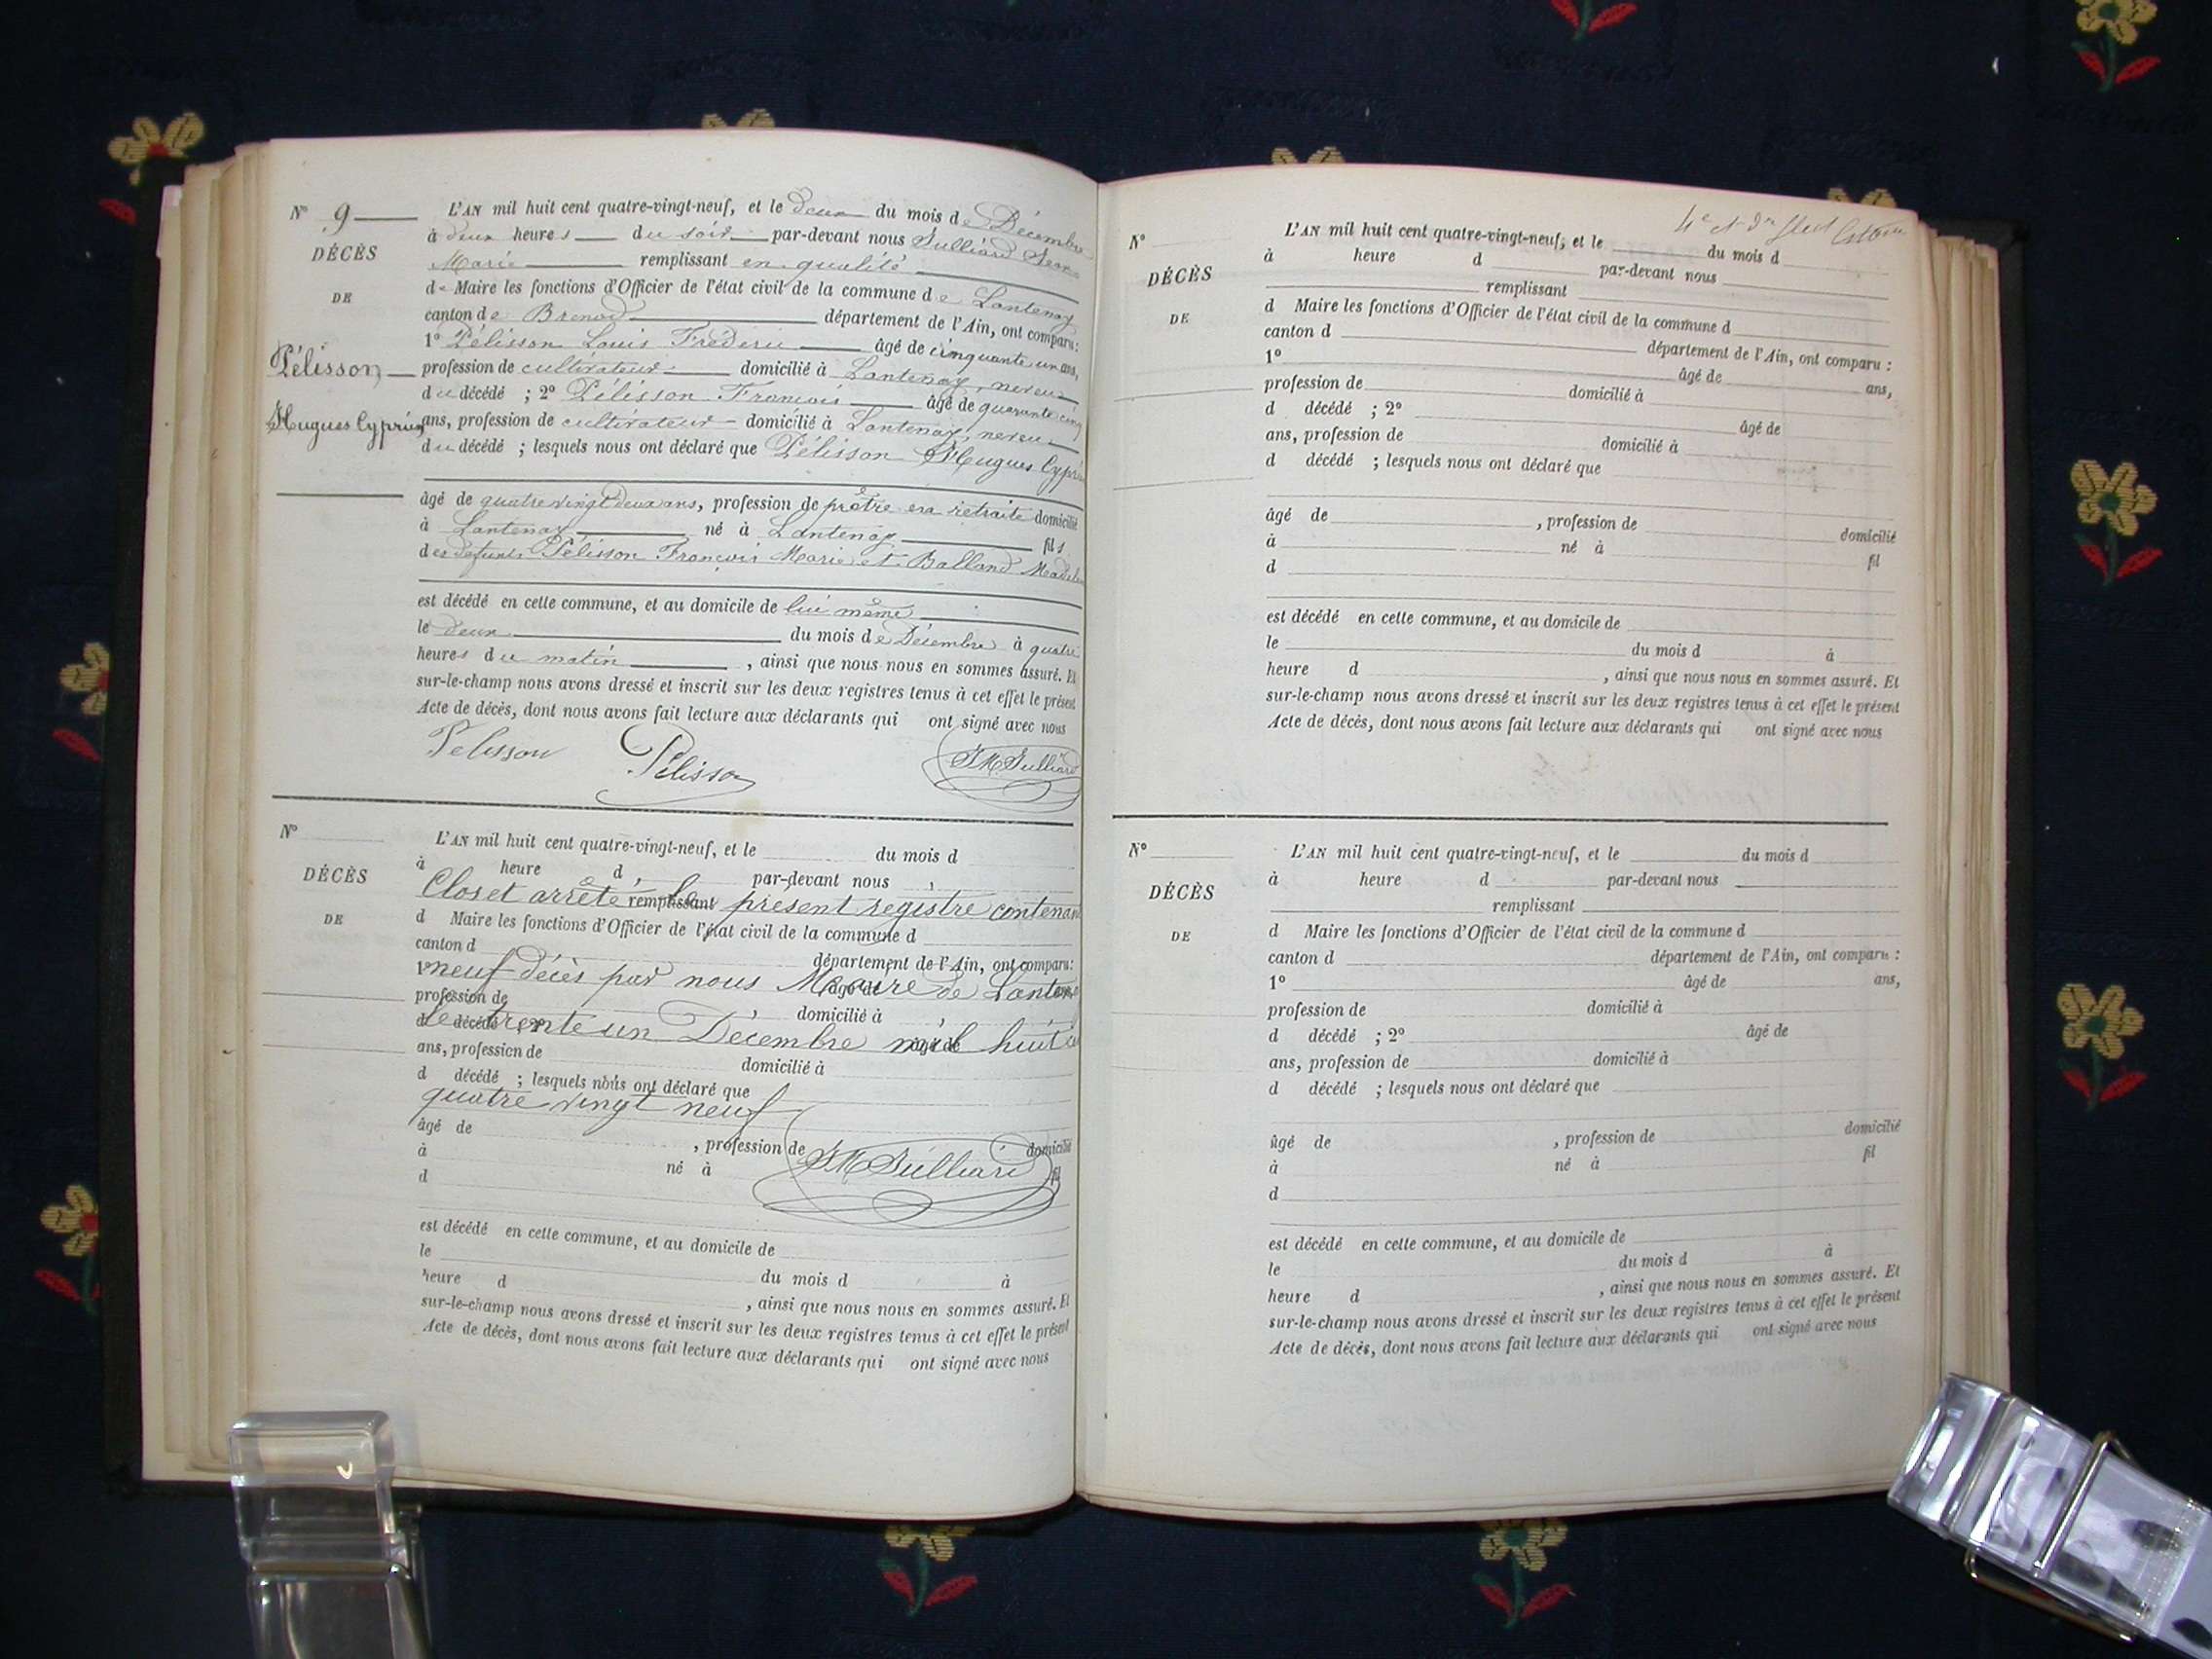 N° 9
DÉCÈS
DE
Pélisson
Hugues Cyprien
L'AN mil huit cent quatre-vingt-neuf, et le deux du mois de Décembre
à deux heures du soir par-devant nous Julliard Jean
Marie remplissant en qualité
de Maire les fonctions d'Officier de l'état civil de la commune de Lantenay
canton de Brenod département de l'Ain, ont comparu:
1° Pélisson Louis Frédéric âgé de cinquante un ans,
profession de cultivateur domicilié à Lantenay, neveu
du décédé ; 2° Pélisson François âgé de quarante cinq
ans, profession de cultivateur domicilié à Lantenay, neveu
du décédé ; lesquels nous ont déclaré que Pélisson Hugues Cyprien
âgé de quatre vingt deux ans, profession de prêtre en retraite domicilié
à Lantenay né à Lantenay fils
des défunts Pélisson François Marie et Balland
est décédé en cette commune, et au domicile de lui même
le deux du mois de Décembre à quatre
heures du matin , ainsi que nous nous en sommes assuré. Et
sur-le-champ nous avons dressé et inscrit sur les deux registres tenus à cet effet le présent
Acte de décès, dont nous avons fait lecture aux déclarants qui ont signé avec nous
Pelisson Pélisson JM Julliard
N°
DÉCÈS
DE
L'AN mil huit cent quatre-vingt-neuf, et le du mois d
à heure d par-devant nous
Clos et arrêté remplissant le présent registre contenant
d Maire les fonctions d'Officier de l'état civil de la commune d
canton d département de l'Ain, ont comparu:
1° neuf décès par nous Maire de Lantenay âgé de ans,
profession de domicilié à
d décédé ; 2° le trente un Décembre mil huit cent âgé de
ans, profession de domicilié à
d décédé ; lesquels nous ont déclaré que
quatre vingt neuf
âgé de , profession de domicilié
à né à fil
d JM Julliard
est décédé en cette commune, et au domicile de
le du mois d à
heure d , ainsi que nous nous en sommes assuré. Et
sur-le-champ nous avons dressé et inscrit sur les deux registres tenus à cet effet le présent
Acte de décès, dont nous avons fait lecture aux déclarants qui ont signé avec nous
4e et
N°
DÉCÈS
DE
L'AN mil huit cent quatre-vingt-neuf, et le du mois d
à heure d par-devant nous
remplissant
d Maire les fonctions d'Officier de l'état civil de la commune d
canton d département de l'Ain, ont comparu :
1° âgé de ans,
profession de domicilié à
d décédé ; 2° âgé de
ans, profession de domicilié à
d décédé ; lesquels nous ont déclaré que
âgé de , profession de domicilié
à né à fil
d
est décédé en cette commune, et au domicile de
le du mois d à
heure d , ainsi que nous nous en sommes assuré. Et
sur-le-champ nous avons dressé et inscrit sur les deux registres tenus à cet effet le présent
Acte de décès, dont nous avons fait lecture aux déclarants qui ont signé avec nous
N°
DÉCÈS
DE
L'AN mil huit cent quatre-vingt-neuf, et le du mois d
à heure d par-devant nous
remplissant
d Maire les fonctions d'Officier de l'état civil de la commune d
canton d département de l'Ain, ont comparu :
1° âgé de ans,
profession de domicilié à
d décédé ; 2° âgé de
ans, profession de domicilié à
d décédé ; lesquels nous ont déclaré que
âgé de , profession de domicilié
à né à fil
d
est décédé en cette commune, et au domicile de
le du mois d à
heure d , ainsi que nous nous en sommes assuré. Et
sur-le-champ nous avons dressé et inscrit sur les deux registres tenus à cet effet le présent
Acte de décès, dont nous avons fait lecture aux déclarants qui ont signé avec nous